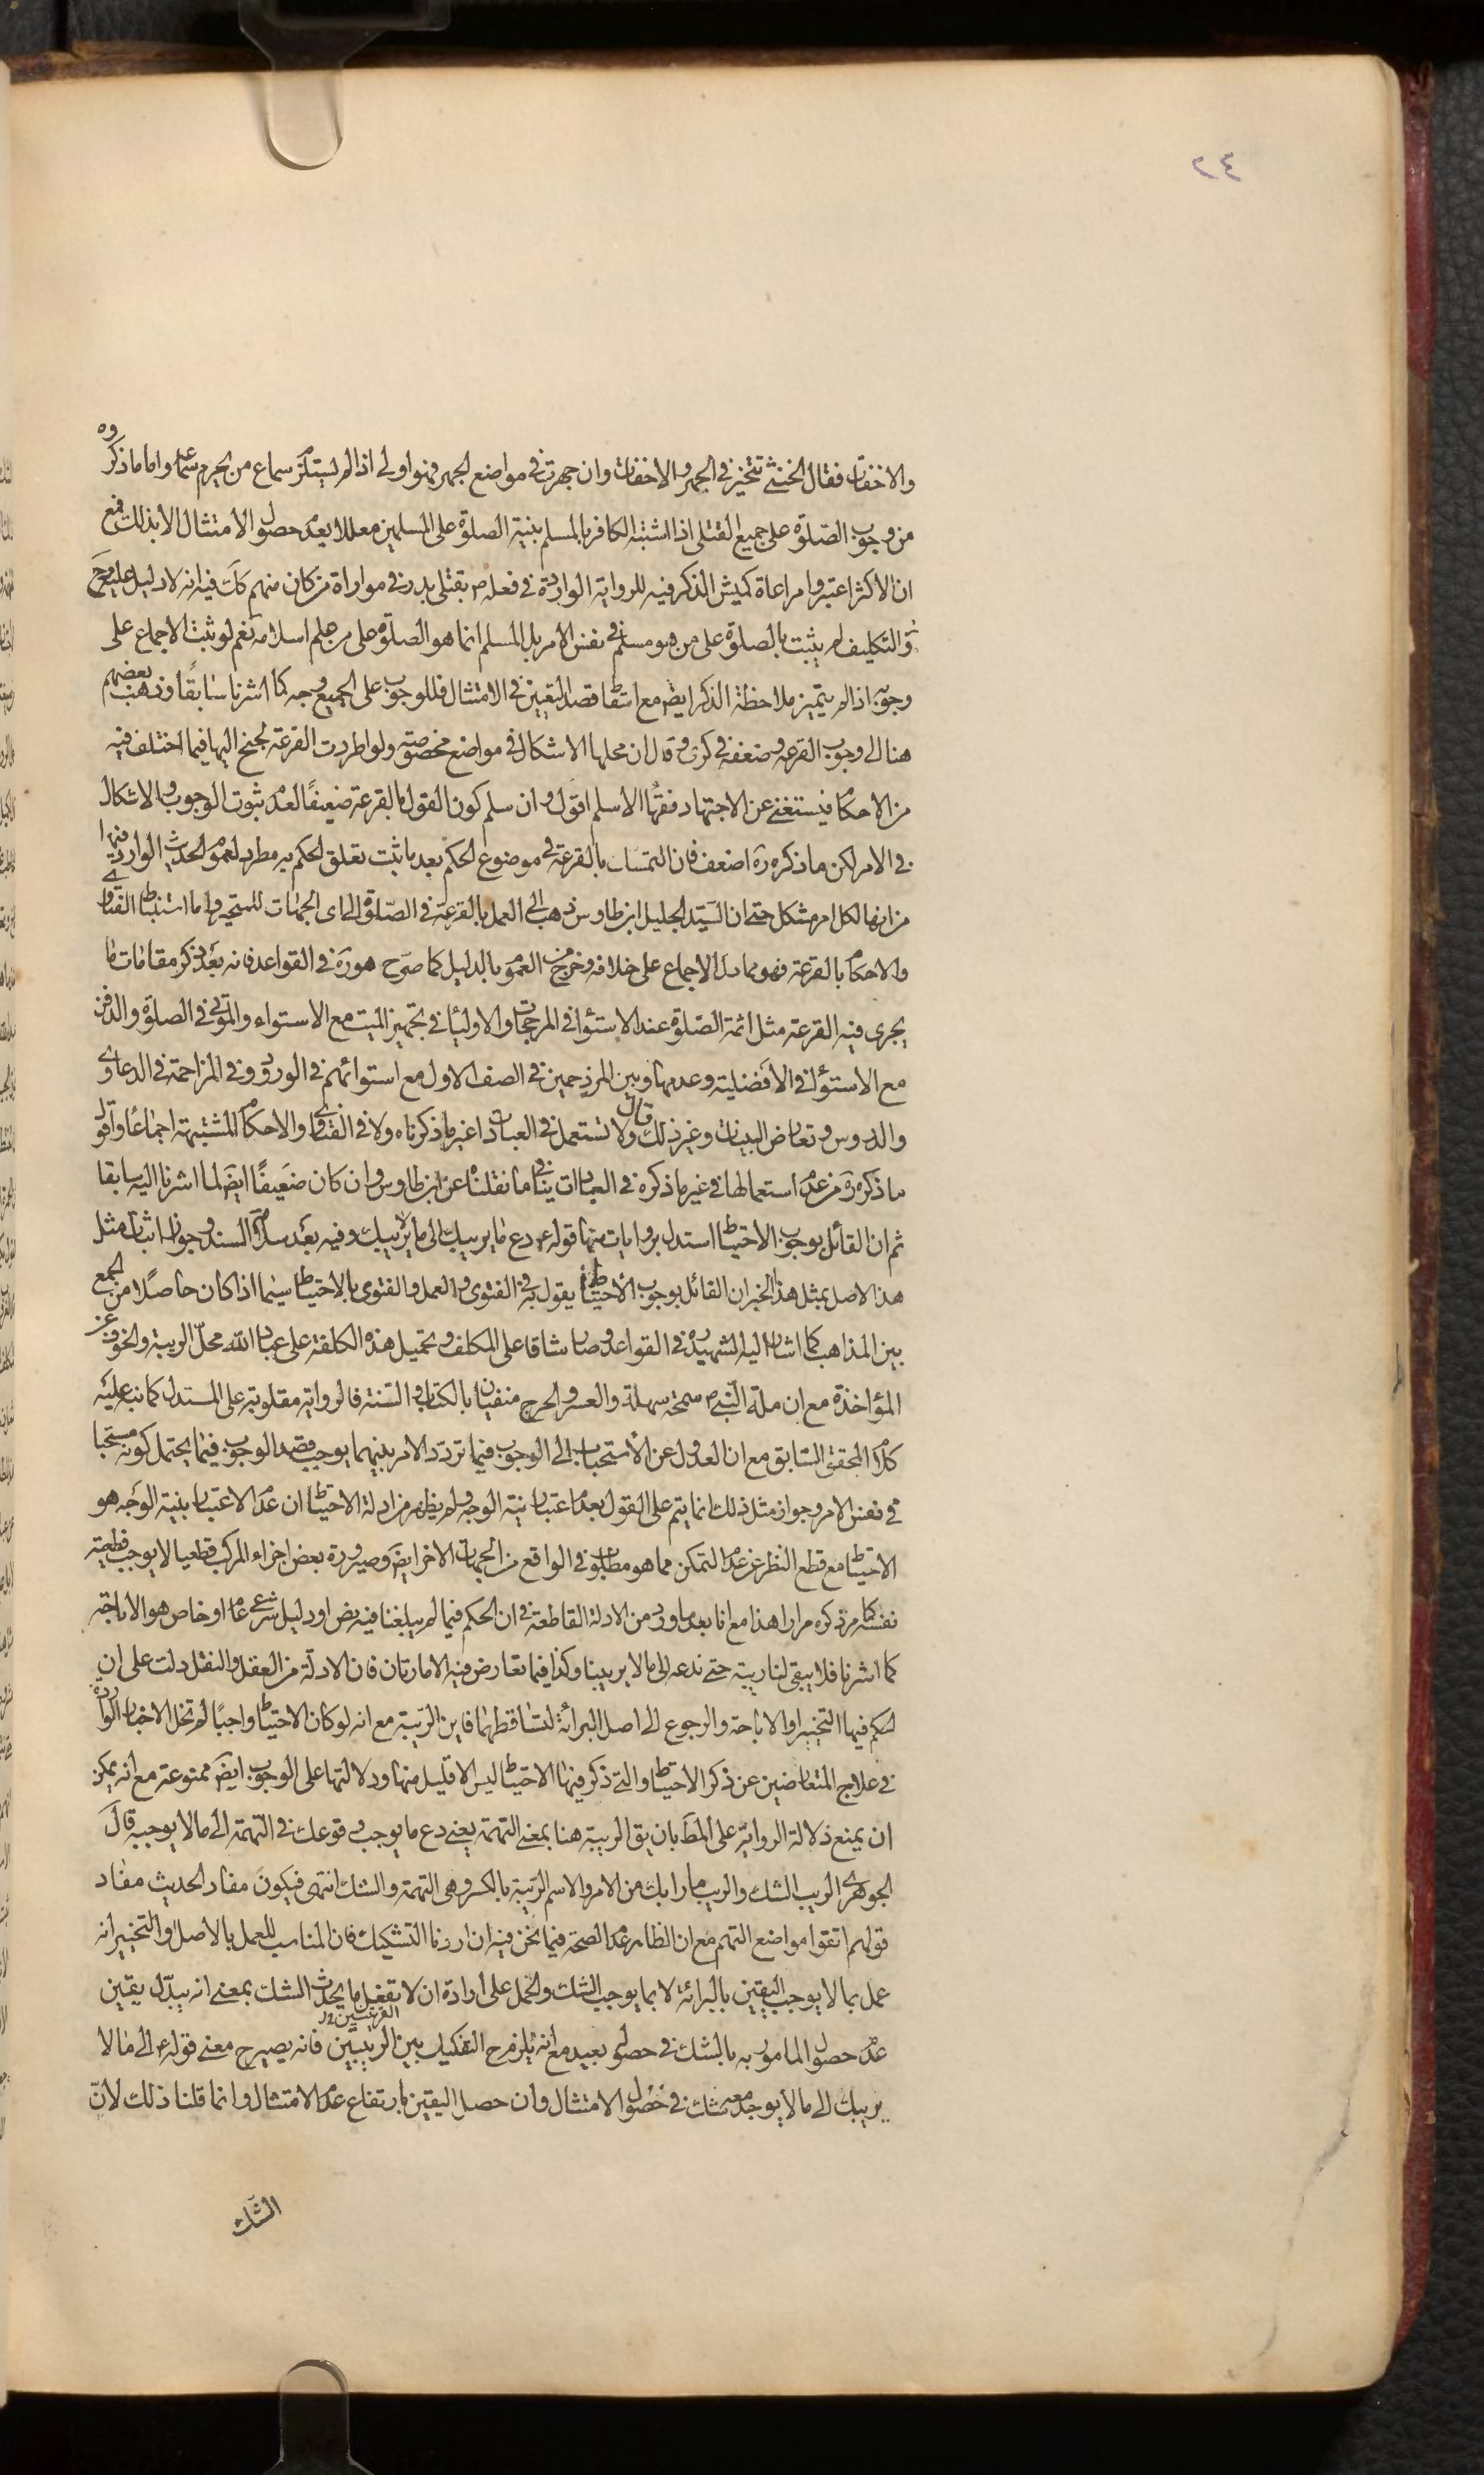 ٢٤
والاخفات فقال الخنثى تتخير في الجهر والاخفات وان جهرت في مواضع الجهر فهو اولى اذا لم يستلزم سماع من يحرم سماعه واما ما ذكروه
من وجوب الصلوة على جميع القتلى اذا اشتبه الكافر بالمسلم بنية الصلوة على المسلمين معللا بعدم حصول الامتثال الا بذلك فمع
ان الاكثر اعتبروا مراعاة كميش الذكر فيه للرواية الواردة في فعله ص بقتلى بدر في مواراة من كان منهم كك فيه انه لا دليل عليه ح
والتكليف لم يثبت بالصلوة على من هو مسلم في نفس الامر بل المسلم انما هو الصلوة على من علم اسلامه نعم لو ثبت الاجماع على
وجوبه اذا لم يتميز ملاحظة الذكر ايضا مع اشتراط قصد التعيين في الامتثال فللوجوب على الجميع وجه كما اشرنا سابقا وذهب بعضهم
هنا الى وجوب القرعة وضعفه في كرى وقال ان محلها الاشكال في مواضع مخصوصة ولو اطردت القرعة لجنح اليها فيما اختلف فيه
من الاحكام فيستغنى عن الاجتهاد فقهاء الاسلم اقول وان سلم كون القول بالقرعة ضعيفا لعدم ثبوت الوجوب والاشكال
في الامر لكن ما ذكره ره اضعف فان التمسك بالقرعة في موضوع الحكم بعد ما ثبت تعلق الحكم به مطرد لعموم الحديث الوارد فيها
من انها لكل امر مشكل حتى ان السيد الجليل ابن طاوس ذهب الى العمل بالقرعة في الصلوة الى اى الجهات للمتحير واما استنباط الفتاوى
والاحكام بالقرعة فهو مما دل الاجماع على خلافه وخرج من العموم بالدليل كما صرح هو ره في القواعد فانه بعد ذكر مقامات ما
يجرى فيه القرعة مثل ائمة الصلوة عند الاستواء في المرجحات والاولياء في تجهيز الميت مع الاستواء والموتى في الصلوة والدفن
مع الاستواء في الافضلية وعدمها وبين المزدحمين في الصف الاول مع استوائهم في الورود وفي المزاحمة في الدعاوى
والدروس وتعارض البينات وغير ذلك قال ولا تستعمل في العبادات غير ما ذكرناه ولا في الفتاوى والاحكام المشتبهة اجماعا واقول
ما ذكره ره من عدم استعمالها في غير ما ذكره في العبادات ينافى ما نقلناه عن ابن طاوس وان كان ضعيفا ايضا لما اشرنا اليه سابقا
ثم ان القائل بوجوب الاحتياط استدل بروايات منها قوله ع دع ما يريبك الى ما لا يريبك وفيه بعد سلامة السند وجواز اثبات مثل
هذا الاصل بمثل هذا الخبر ان القائل بوجوب الاحتياط يقول به في الفتوى والعمل والفتوى بالاحتياط سيما اذا كان حاصلا من الجمع
بين المذاهب كما اشار اليه الشهيد ره في القواعد وصار شاقا على المكلف وتحميل هذه الكلفة على عباد الله محل الريبة والخوف عن
المؤاخذة مع ان ملة النبي ص سمحة سهلة والعسر والحرج منفيان بالكتاب والسنة فالرواية مقلوبة على المستدل كما نبه عليه
كلام المحقق السابق مع ان العدول عن الاستحباب الى الوجوب فيما تردد الامر بينهما يوجب قصد الوجوب فيما يحتمل كونه مستحبا
في نفس الامر وجواز مثل ذلك انما يتم على القول بعدم اعتبار نية الوجه ولم يظهر من ادلة الاحتياط ان عدم الاعتبار بنية الوجه هو
الاحتياط مع قطع النظر عن عدم التمكن مما هو مطلوب في الواقع من الجهات الاخر ايضا وصيرورة بعض اجزاء المركب قطعيا لا يوجب قطعية
نفسه كما مر ذكره مرارا هذا مع انا بعد ما ورد من الادلة القاطعة في ان الحكم فيما لم يبلغنا فيه نص او دليل شرعي عام او خاص هو الاباحة
كما اشرنا فلا يبقى لنا ريبة حتى ندعه الى ما لا يريبنا وكذا فيما تعارض فيه الامارتان فان الادلة من العقل والنقل دلت على ان
الحكم فيها التخيير او الاباحة والرجوع الى اصل البرائة لتساقطهما فاين الريبة مع انه لو كان الاحتياط واجبا لم تخل الاخبار الواردة
في علاج المتعارضين عن ذكر الاحتياط والتي ذكر فيها الاحتياط ليس الا قليل منها ودلالتها على الوجوب ايضا ممنوعة مع انه يمكن
ان يمنع دلالة الرواية على المط بان يق الريبة هنا بمعنى التهمة يعنى دع ما يوجب وقوعك في التهمة الى ما لا يوجبه قال
الجوهرى الريب الشك والريب ما رابك من الامر والاسم الريبة بالكسر وهى التهمة والشك انتهى فيكون مفاد الحديث مفاد
قولهم اتقوا مواضع التهم مع ان الظاهر عدم الصحة فيما نحن فيه ان اردنا التشكيك فان المناسب للعمل بالاصل والتخيير انه
عمل بما لا يوجب اليقين بالبرائة لا بما يوجب الشك والحمل على ارادة ان لا تفعل ما يحدث الشك بمعنى انه يبدل يقين
عدم حصول المامور به بالشك في حصوله بعيد مع انه يلزم ح التفكيك بين الريبين القريبين فانه يصير ح معنى قوله ع الى ما لا
يريبك الى ما لا يوجد معه شك في حصول الامتثال وان حصل اليقين بارتفاع عدم الامتثال وانما قلنا ذلك لان
الشك